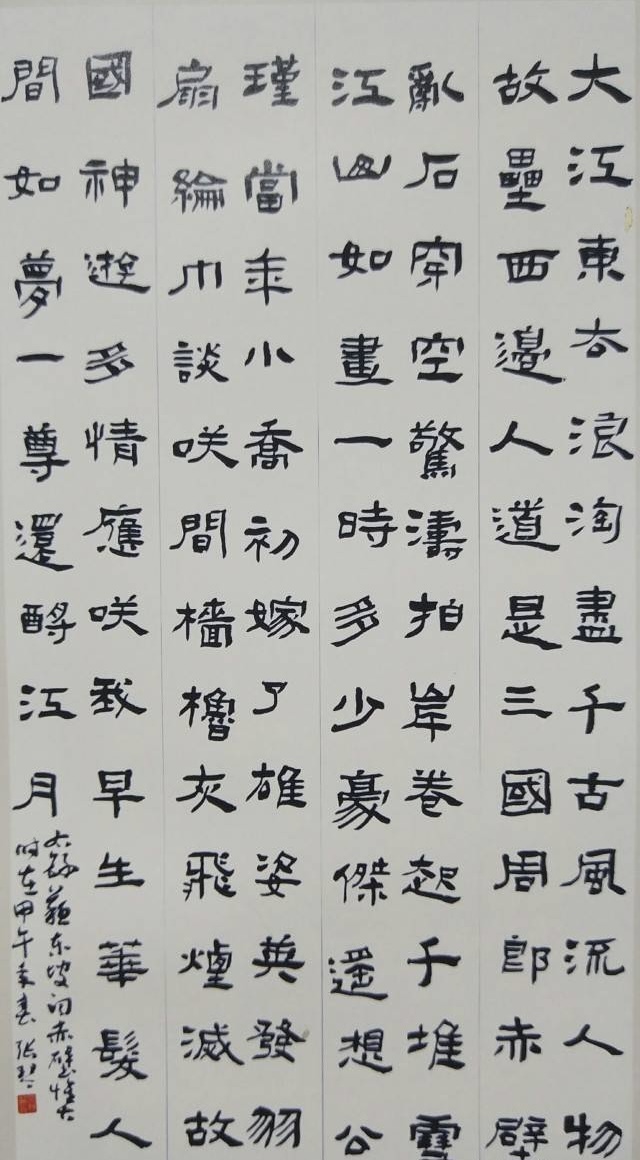 大江東去浪淘盡千古風流人物
故壘西邊人道是三國周郎赤壁
亂石穿空驚濤拍岸卷起千堆雪
江山如畫一時多少豪傑遙想公
瑾當年小喬初嫁了雄姿英發羽
扇綸巾談咲間檣櫓灰飛煙滅故
國神遊多情應咲我早生華髮人
間如夢一尊還酹江月
右錄蘇东坡词赤壁懷古
时在甲午